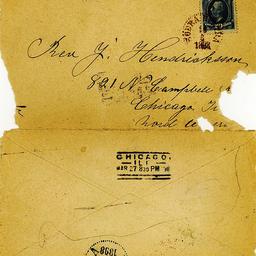 Rev J. Hendrickson
891 N. Campbell
Chicago
CHICAGO,
ILL
MAR 27 8 30 PM
1898